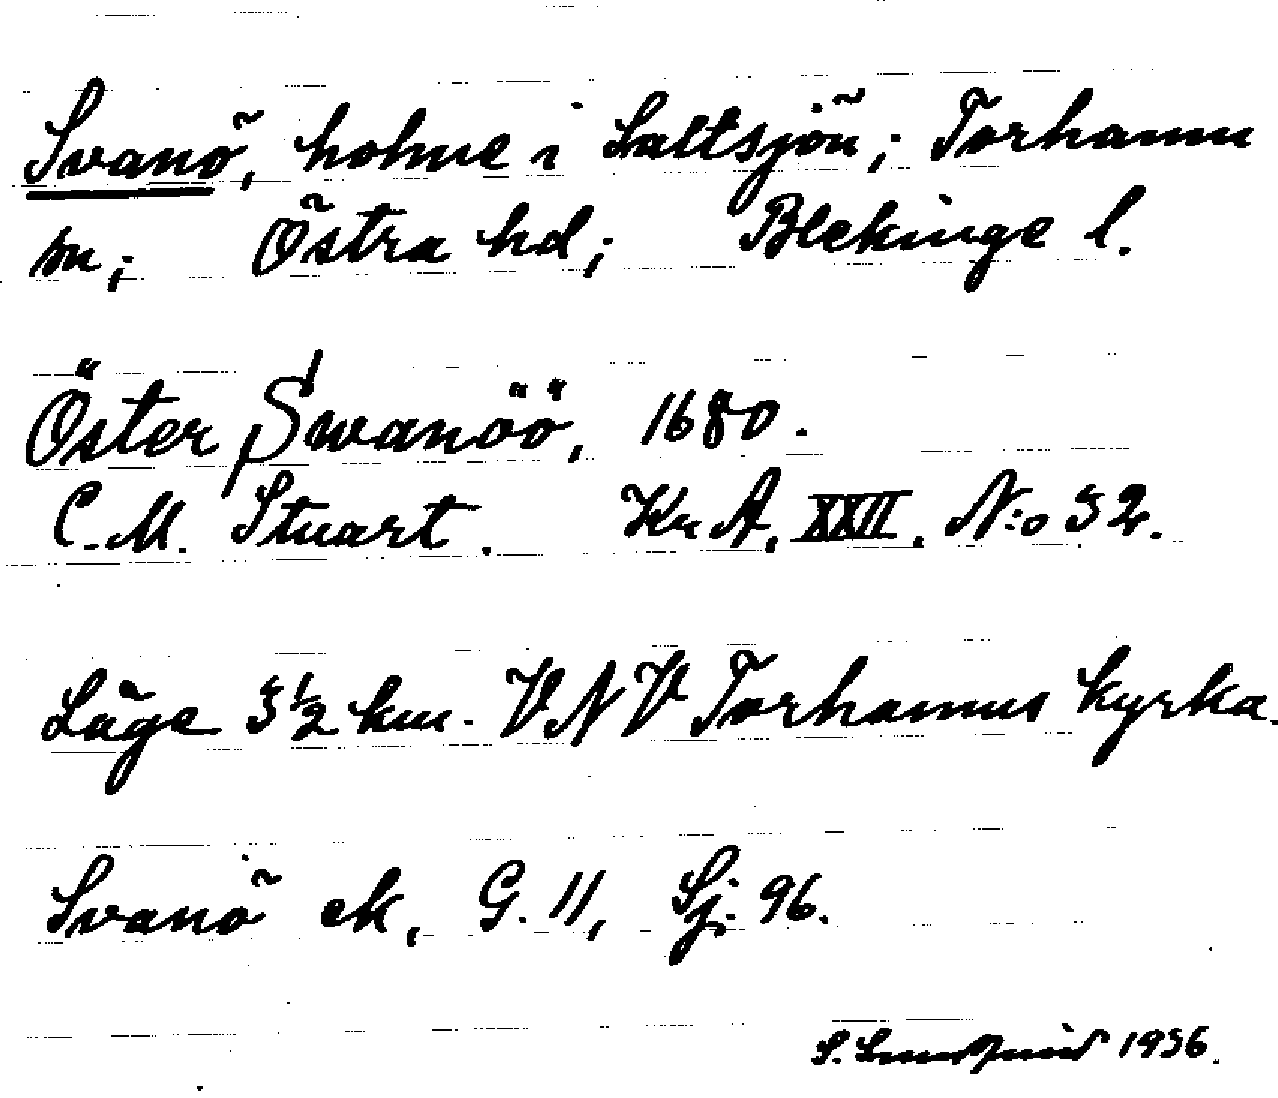 Svanö, holme i Saltsjön; Torhamn
sn; Östra hd; Blekinge l.
Öster Swanöö, 1680.
C.M. Stuart. Kr A. XXII. N:o 32.
Läge 3½ km. VNV Torhamns kyrka.
Svanö ek, G. 11, Sj. 96.
S. 1936.